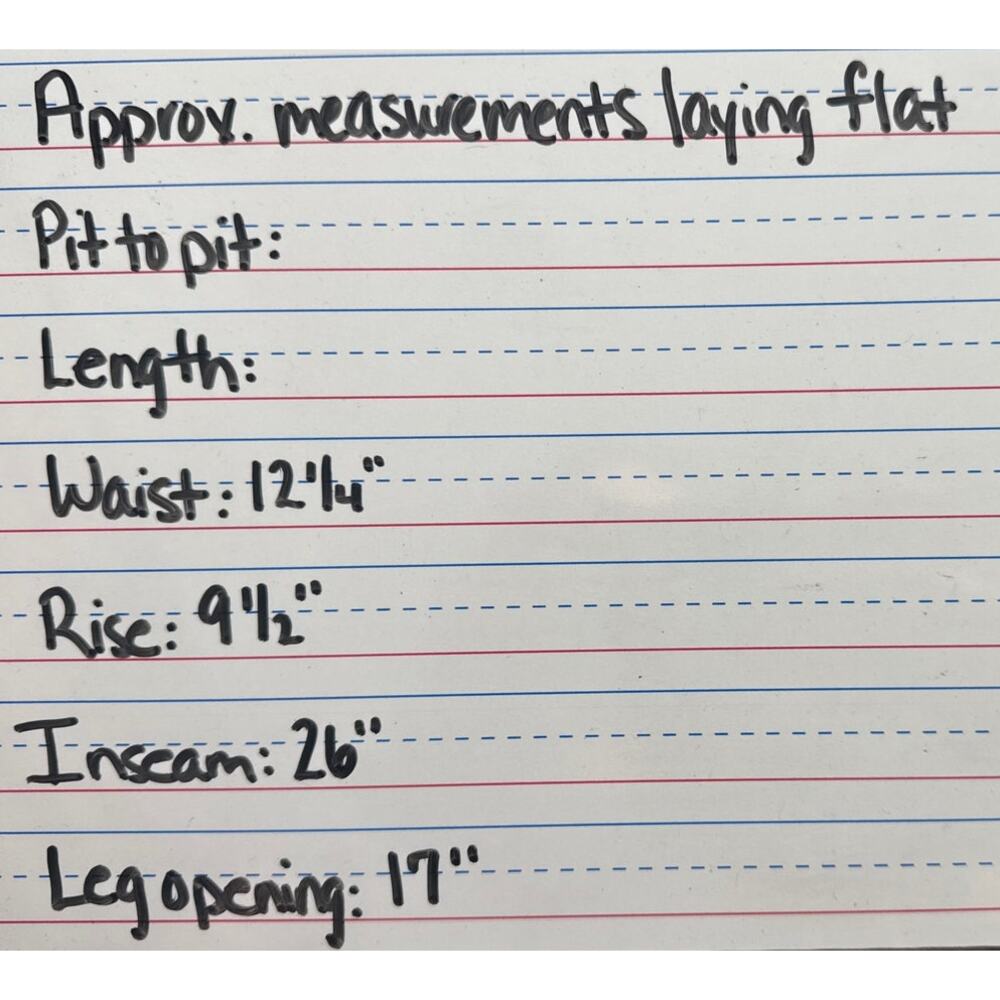 Approx. measurements laying flat
Pit to pit:
Length:
Waist: 12 1/4"
Rise: 9 1/2"
Inseam: 26"
Leg opening: 17"